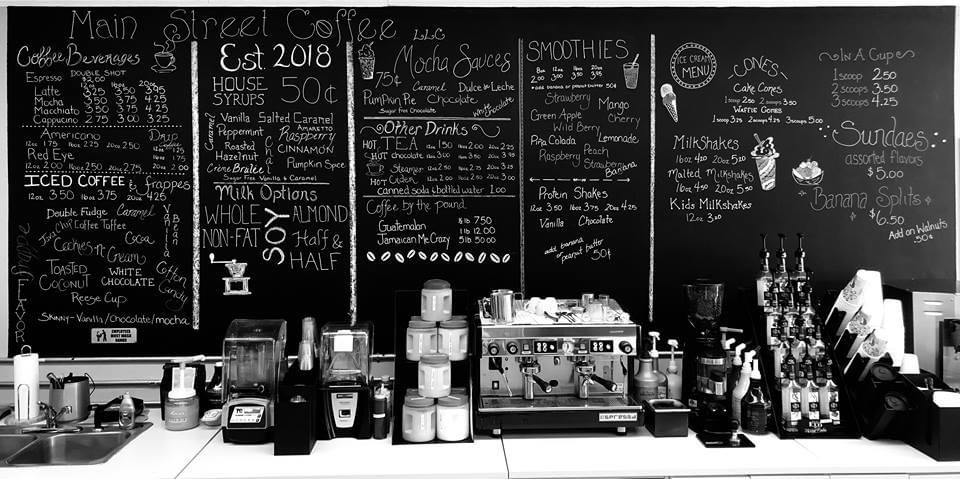 Main Street Coffee LLC
Coffee Beverages
DOUBLE SHOT
Espresso $2.00
12oz 16oz 20oz
Latte 3.25 3.50 3.95
Mocha 3.50 3.75 4.25
Macchiato 3.50 3.75 4.25
Cappucino 2.75 3.00 3.25
Americano
12oz 1.75 16oz 2.25 20oz 2.50
Drip
12oz 1.25
16oz 1.75
20oz 2.25
Red Eye
12oz 2.00 16oz 2.50 20oz 2.75
ICED COFFEE & frappes
12oz 3.50 16oz 3.75 20oz 4.25
frappe
FLAVOR
Double Fudge Caramel
Chip Coffee Toffee
Java
Cocoa
Vanilla Bean
Cookies n' Cream
TOASTED COCONUT
WHITE CHOCOLATE
Cotton Candy
Reese Cup
SKINNY-Vanilla/Chocolate/mocha
EMPLOYEES MUST WASH HANDS
Est. 2018
HOUSE SYRUPS 50¢
Vanilla Salted Caramel
Caramel
Peppermint
AMARETTO
Raspberry
Roasted Hazelnut
CINNAMON
Crème Brulée
Pumpkin Spice
Sugar Free Vanilla & Caramel
Milk Options
WHOLE
SOY
ALMOND
NON-FAT
Half & HALF
Mocha Sauces
75¢
Caramel Dulce de Leche
Pumpkin Pie Chocolate
White Chocolate
Sugar Free Chocolate
Other Drinks
HOT TEA 12oz 1.50 16oz 2.00 20oz 2.25
HOT Chocolate 12oz 3.00
Steamer
HOT Cider
canned soda & bottled water 1.00
Coffee by the pound
Guatemalan ½ lb 7.50
1 lb 12.00
Jamaican Me Crazy 5 lb 50.00
SMOOTHIES
8oz 12oz 16oz 20oz
2.00 3.00 3.50 3.95
* add banana or peanut butter 50¢
Strawberry
Mango
Green Apple
Cherry
Wild Berry
Piña Colada
Lemonade
Raspberry
Peach
Strawberry Banana
Protein Shakes
12oz 3.50 16oz 3.95 20oz 4.25
Vanilla Chocolate
add banana or peanut butter 50¢
ICE CREAM MENU
CONES
Cake Cones
1 scoop 2.50 2 scoops 3.50
Waffle Cones
1 scoop 3.25 2 scoops 4.25 3 scoops 5.00
MilkShakes
16oz 4.20 20oz 5.20
Malted Milkshakes
16oz 4.50 20oz 5.50
Kids Milkshakes
12oz 3.20
In A Cup
1 scoop 2.50
2 scoops 3.50
3 scoops 4.25
Sundaes
assorted flavors
$5.00
Banana Splits
$6.50
Add on Walnuts
.50¢
ESPRESSO